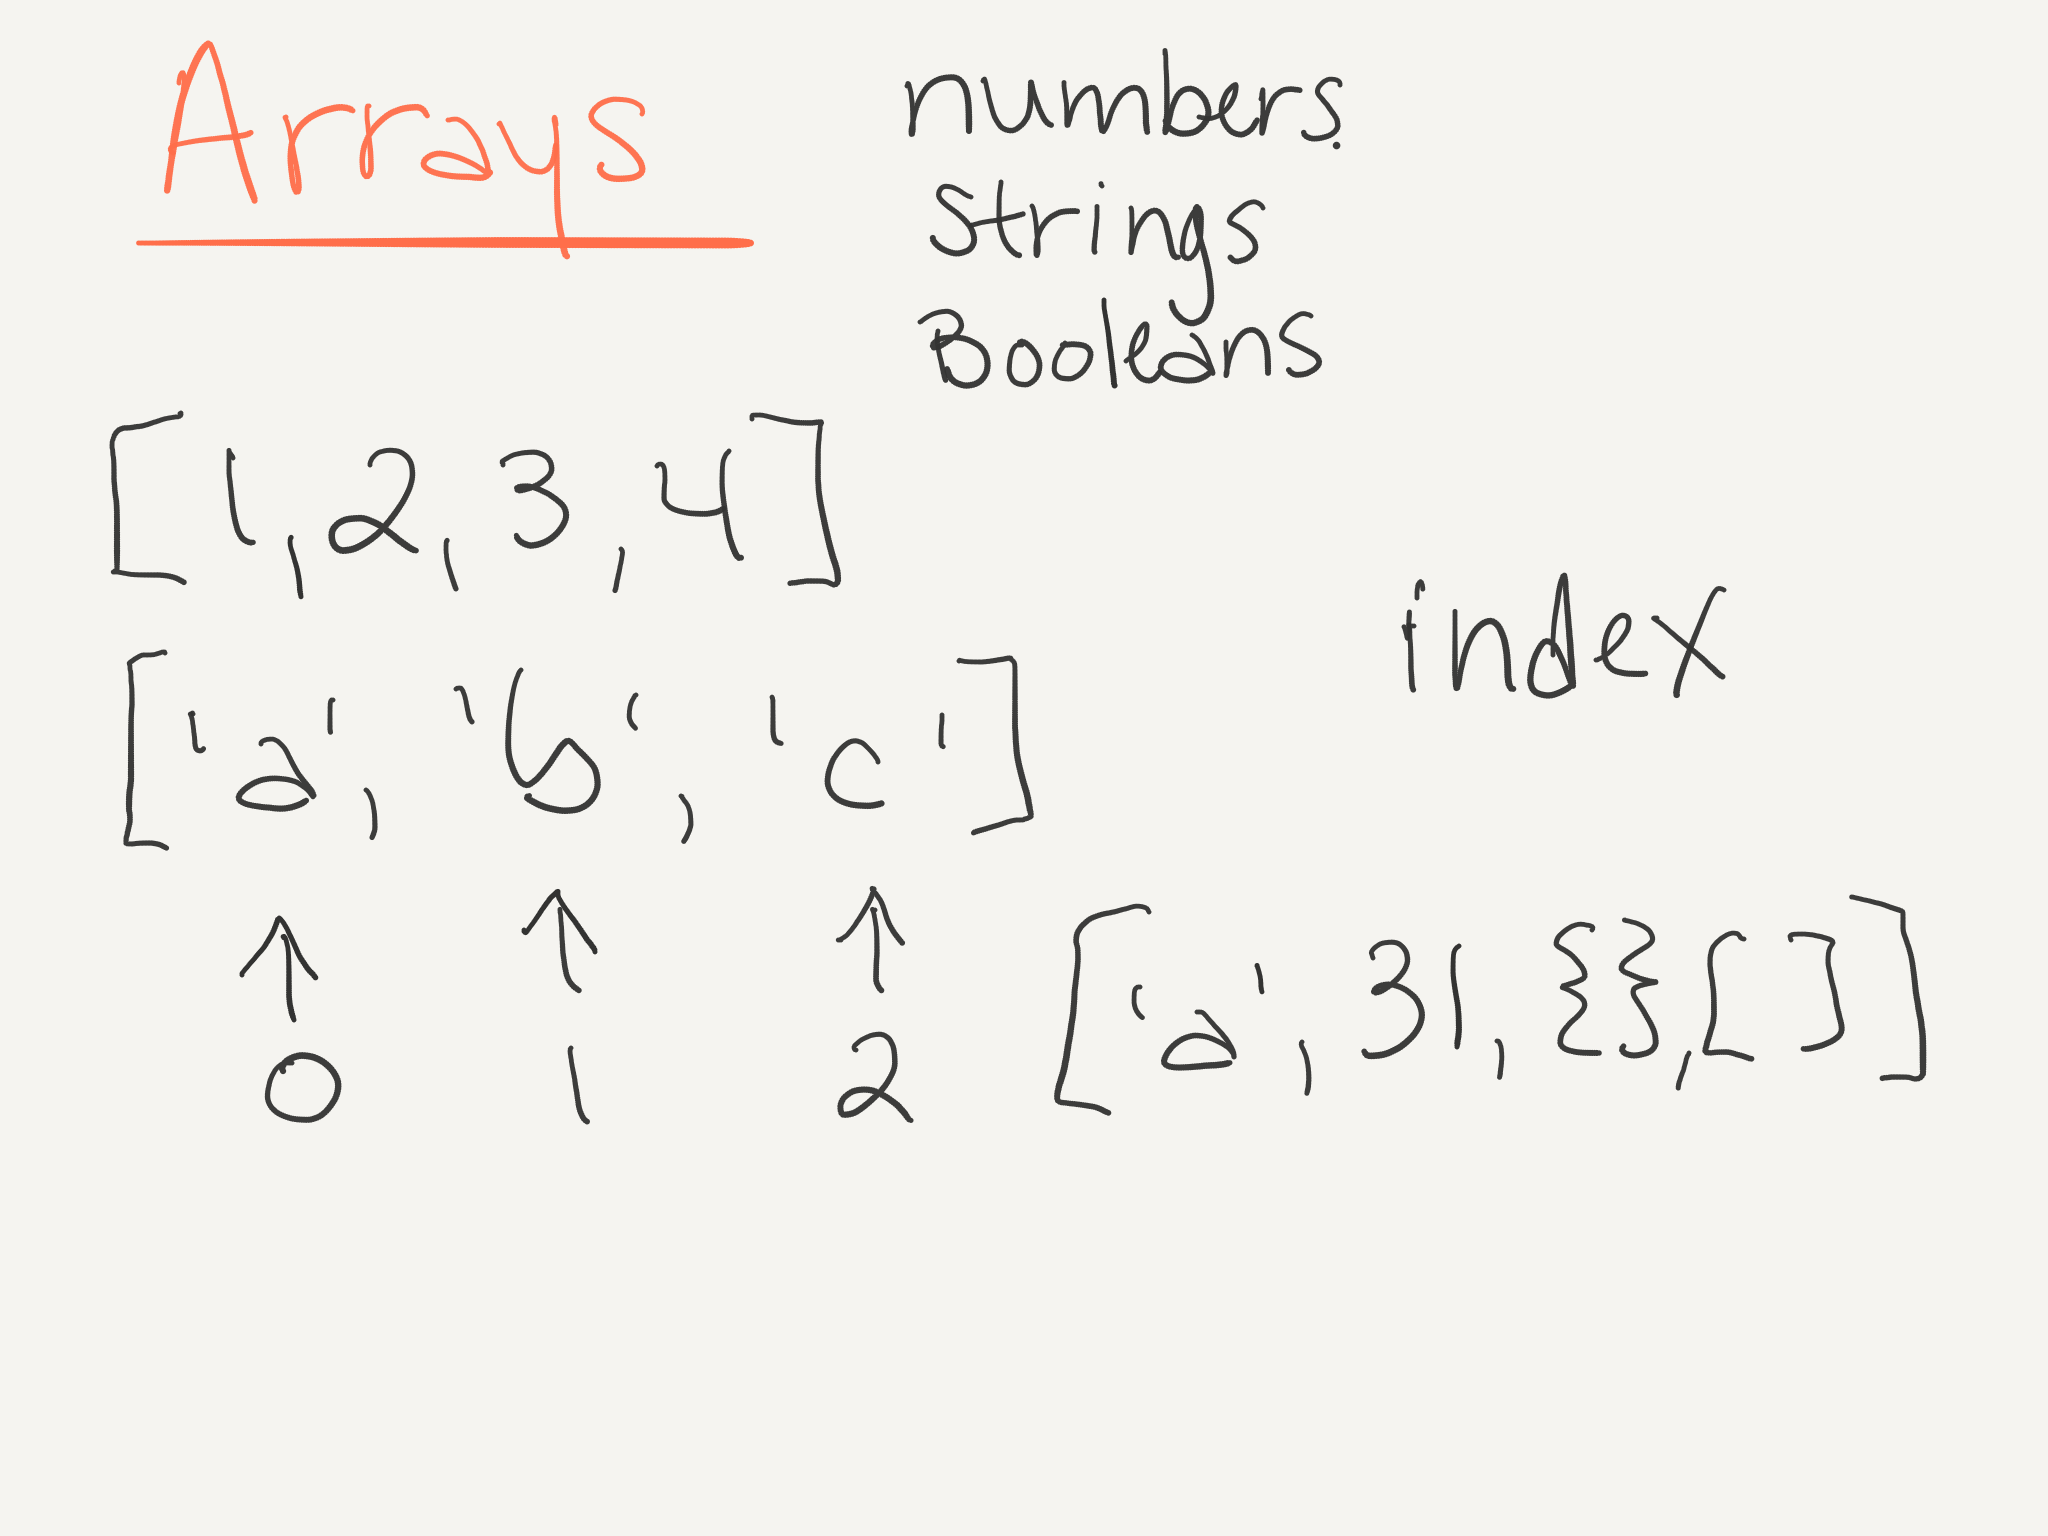 Arrays
numbers.
Strings
Booleans
[1, 2, 3, 4]
index
['a', 'b', 'c']
↑ ↑ ↑
0 1 2
['a', 31, {}, []]